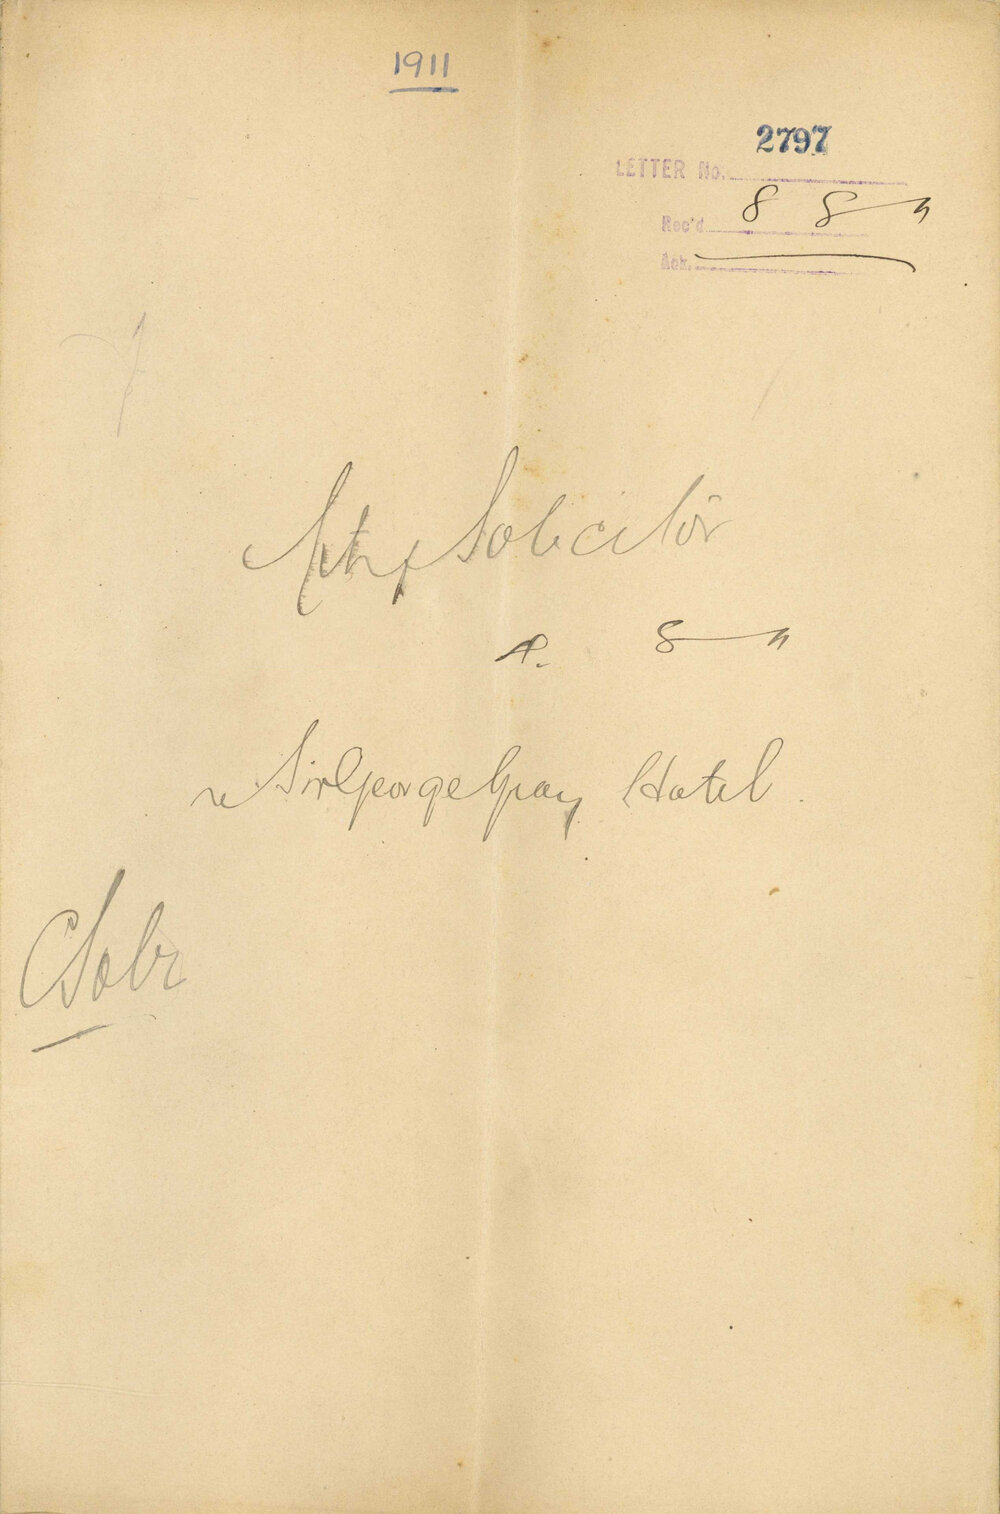 1911
2797
LETTER No.
Rec'd 8 8 11
Ack.
City Solicitor
8 11
re Sir George Grey Hotel
C Solr